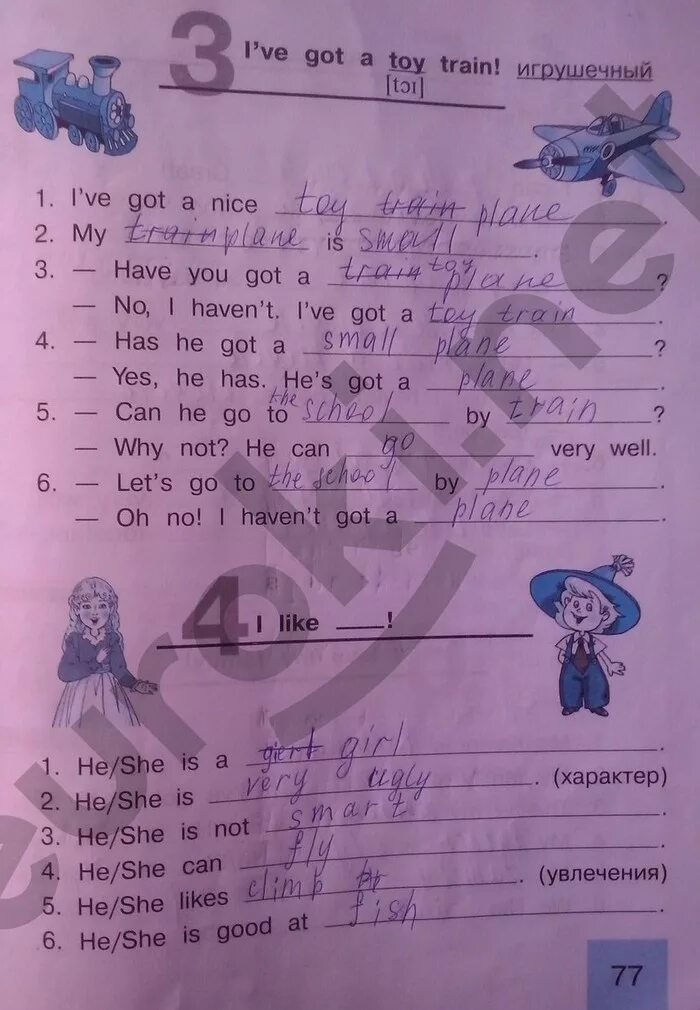 3 I've got a toy train! игрушечный
[tɔɪ]
1. I've got a nice toy train plane.
2. My train plane is small.
3. — Have you got a train toy plane?
— No, I haven't. I've got a toy train.
4. — Has he got a small plane?
— Yes, he has. He's got a plane.
5. — Can he go to the school by train?
— Why not? He can go very well.
6. — Let's go to the school by plane.
— Oh no! I haven't got a plane.
4 I like ___!
1. He/She is a girl.
2. He/She is very ugly. (характер)
3. He/She is not smart.
4. He/She can fly.
5. He/She likes climb. (увлечения)
6. He/She is good at fish.
77
euroki.net